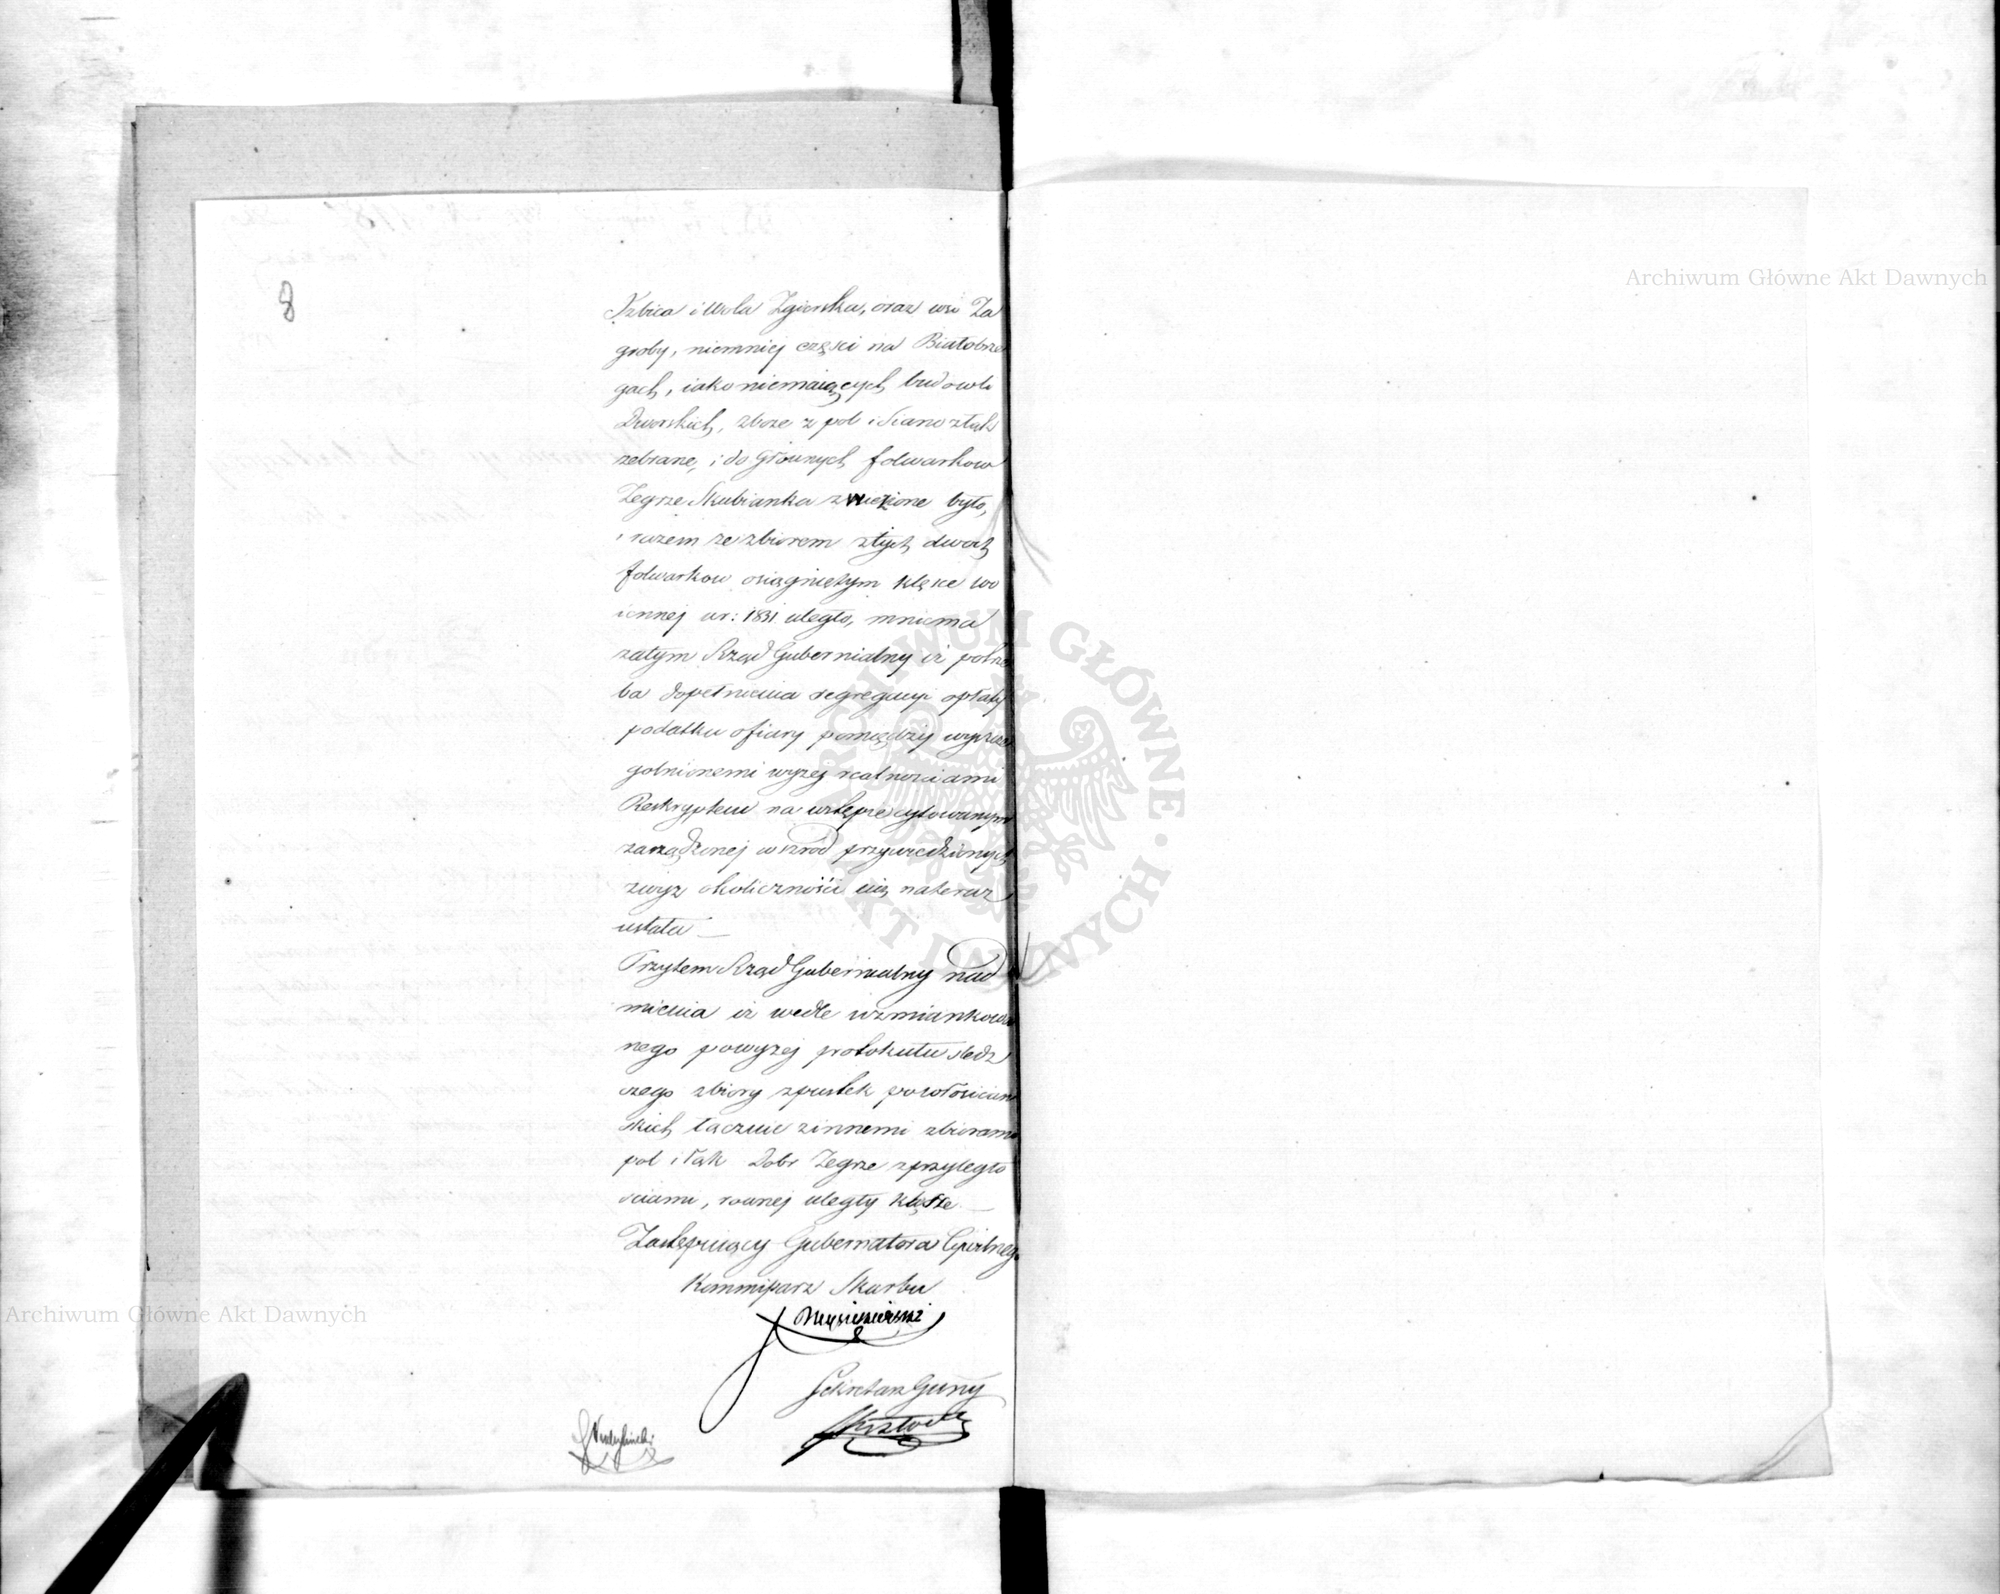 8
Izbica i Wola Zgierska, oraz wsi Za
groby, niemniej części na Białobrze
gach, iako niemaiących budowli
Dworskich, zboże z pol i Siano złąk
zebrane, i do Głównych folwarkow
Zegrze Skubianka zwiezione było,
i razem ze zbiorem ztych dwoch
folwarkow osiągniętym klęsce wo
iennej w r: 1831 uległo, mniema
zatym Rząd Gubernialny iż potrze
ba dopełnienia segregacyi opłaty
podatku ofiary pomiędzy wyszcze
golnionemi wyzej realnosciami
Reskryptem na wstępie cytowanym
zarządzonej wśród przywiedzionych
zwyz okoliczności iuż nateraz
ustała —
Przytem Rząd Gubernialny nad
mienia iż wedle wzmiankowa
nego powyzej protokułu sledz
czego zbiory zpustek powłoscian
skich łącznie zinnemi zbiorami
pol i łąk Dobr Zegrze zprzyległo
sciami, rownej uległy klęsce —
Zastępuiący Gubernatora Cywilnego
Kommissarz Skarbu
Sekretarz Gũny
Archiwum Główne Akt Dawnych
Archiwum Główne Akt Dawnych
ARCHIWUM GŁÓWNE AKT DAWNYCH